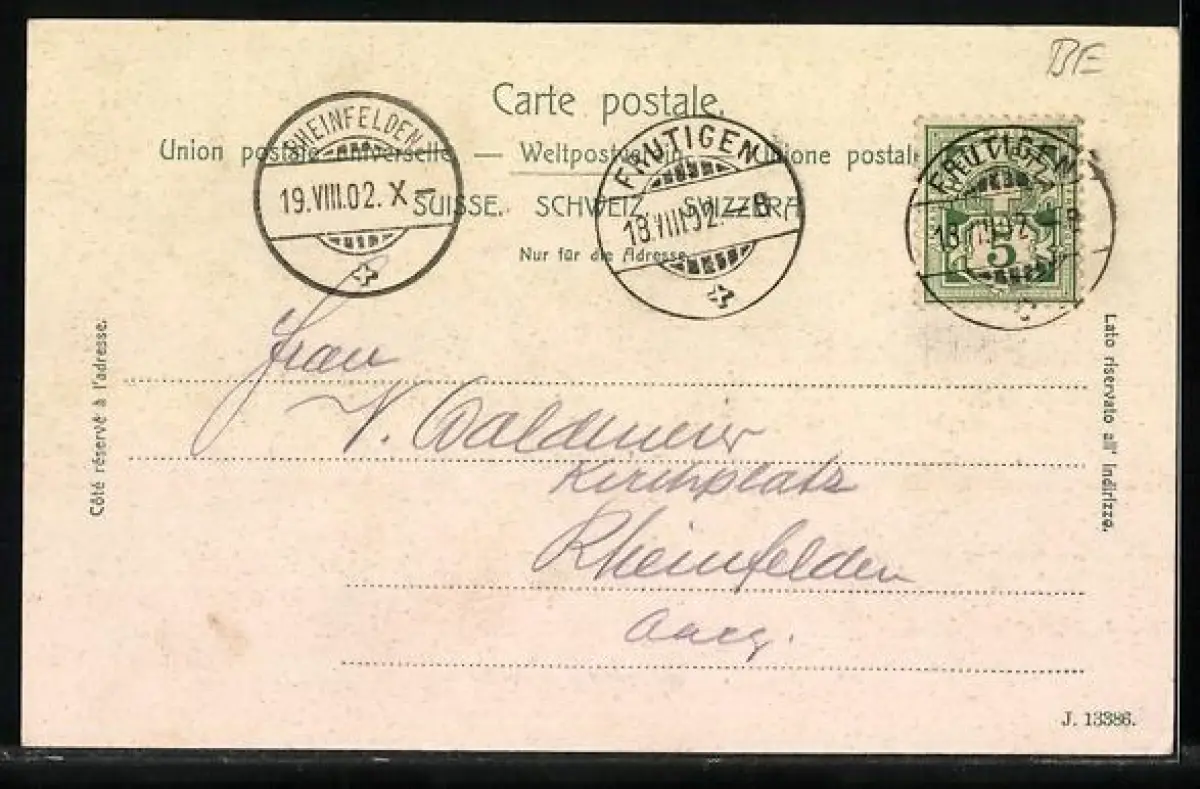 BE
Carte postale.
Union postale universelle — Weltpostverein — Unione postale
SUISSE. SCHWEIZ. SVIZZERA
Nur für die Adresse.
RHEINFELDEN
19.VIII.02. X
FRUTIGEN
18.VIII.02. - 8
FRUTIGEN
18.VIII.02. - 8
5
Côté réservé à l'adresse.
Lato riservato all' indirizzo.
Frau
V. Waldmeier
Kirchplatz
Rheinfelden
Aarg.
J. 13386.